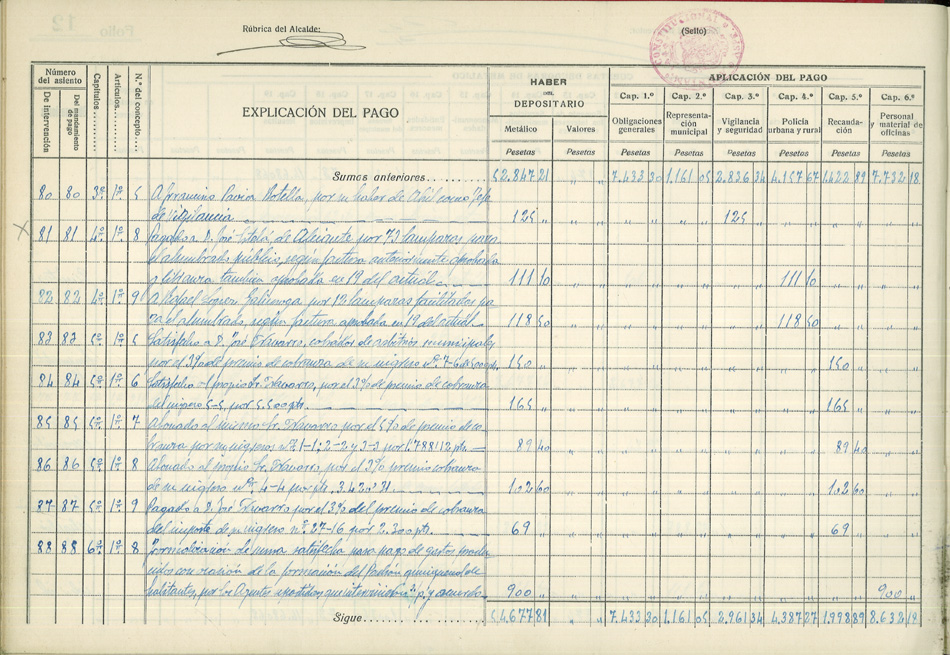 Rúbrica del Alcalde:
(Sello)
Número del asiento
De intervención
Del mandamiento de pago
Capítulos
Artículos
N.º del concepto
EXPLICACIÓN DEL PAGO
HABER DEL DEPOSITARIO
Metálico
Pesetas
Valores
Pesetas
APLICACIÓN DEL PAGO
Cap. 1.º
Obligaciones generales
Pesetas
Cap. 2.º
Representación municipal
Pesetas
Cap. 3.º
Vigilancia y seguridad
Pesetas
Cap. 4.º
Policía urbana y rural
Pesetas
Cap. 5.º
Recaudación
Pesetas
Cap. 6.º
Personal y material de oficinas
Pesetas
Sumas anteriores 52.847 21 " " 7.433 30 1.161 05 2.836 34 4.157 67 1.422 89 7.732 18
80 80 3º 1º 5 A por su haber de Abril como Jefe
de Vigilancia 125 " 125
81 81 4º 1º 8 Pagado a D. José de Alicante por 73 lamparas para
el alumbrado público, segun factura anteriormente aprobada
y libranza tambien aprobada en 19 del actual 111 10 111 10
82 82 4º 1º 9 A Rafael por 12 lamparas facilitadas pa
ra el alumbrado, según factura aprobada en 19 del actual 118 50 118 50
83 83 5º 1º 5 Satisfecho a D. José Navarro, cobrador de arbitrios municipales
por el 3% de premio de cobranza de su ingreso nº 7-6 de 5000 pts. 150 " 150 "
84 84 5º 1º 6 Satisfecho al propio Sr. Navarro, por el 3% de premio de cobranza
del ingreso 5-5, por 5.500 pts. 165 " 165 "
85 85 5º 1º 7 Abonado al mismo Sr. Navarro por el 5% de premio de co
branza por su ingresos nº 1-1; 2-2 y 3-3 por 1.788'12 pts. 89 40 89 40
86 86 5º 1º 8 Abonado al propio Sr. Navarro, por el 3% premio cobranza
de su ingreso nº 4-4 por pts. 3.420'21 102 60 102 60
87 87 5º 1º 9 Pagado a D. José Navarro por el 3% del premio de cobranza
del importe de su ingreso nº 27-16 por 2.300 pts. 69 " 69 "
88 88 6º 1º 8 Formalización de suma satisfecha para pago de gastos produ
cidos con ocasión de la formación del Padrón quinquenal de
habitantes, por los Agentes repartidores que intervinieron 900 " 900 "
Sigue 54.677 81 " " 7.433 30 1.161 05 2.961 34 4.387 27 1.998 89 8.632 18